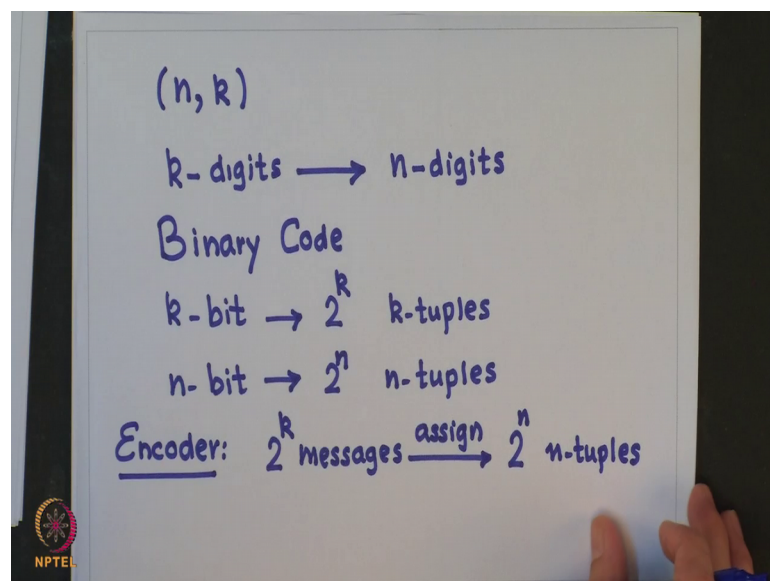 (n, k)
k-digits ⟶ n-digits
Binary Code
k-bit → 2^k k-tuples
n-bit → 2^n n-tuples
Encoder: 2^k messages assign ⟶ 2^n n-tuples
NPTEL